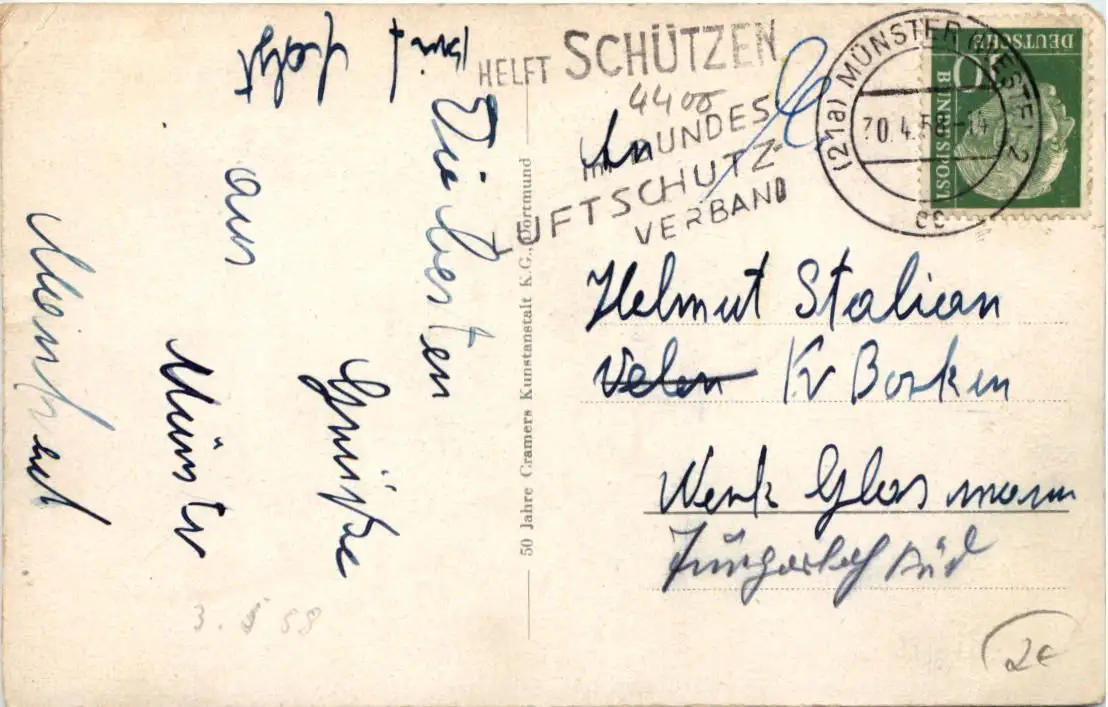 HELFT SCHÜTZEN
4400
IM BUNDES
LUFTSCHUTZ-
VERBAND
(21a) MÜNSTER (WESTF) 2
30.4.58-14
cc
DEUTSCHE
BUNDESPOST
10
An
Helmut Stalian
Velen Kr Borken
Werk Glasmann
Süd
Die besten
Grüße
aus
Münster
50 Jahre Cramers Kunstanstalt K.G., Dortmund
3. 5 58
2€